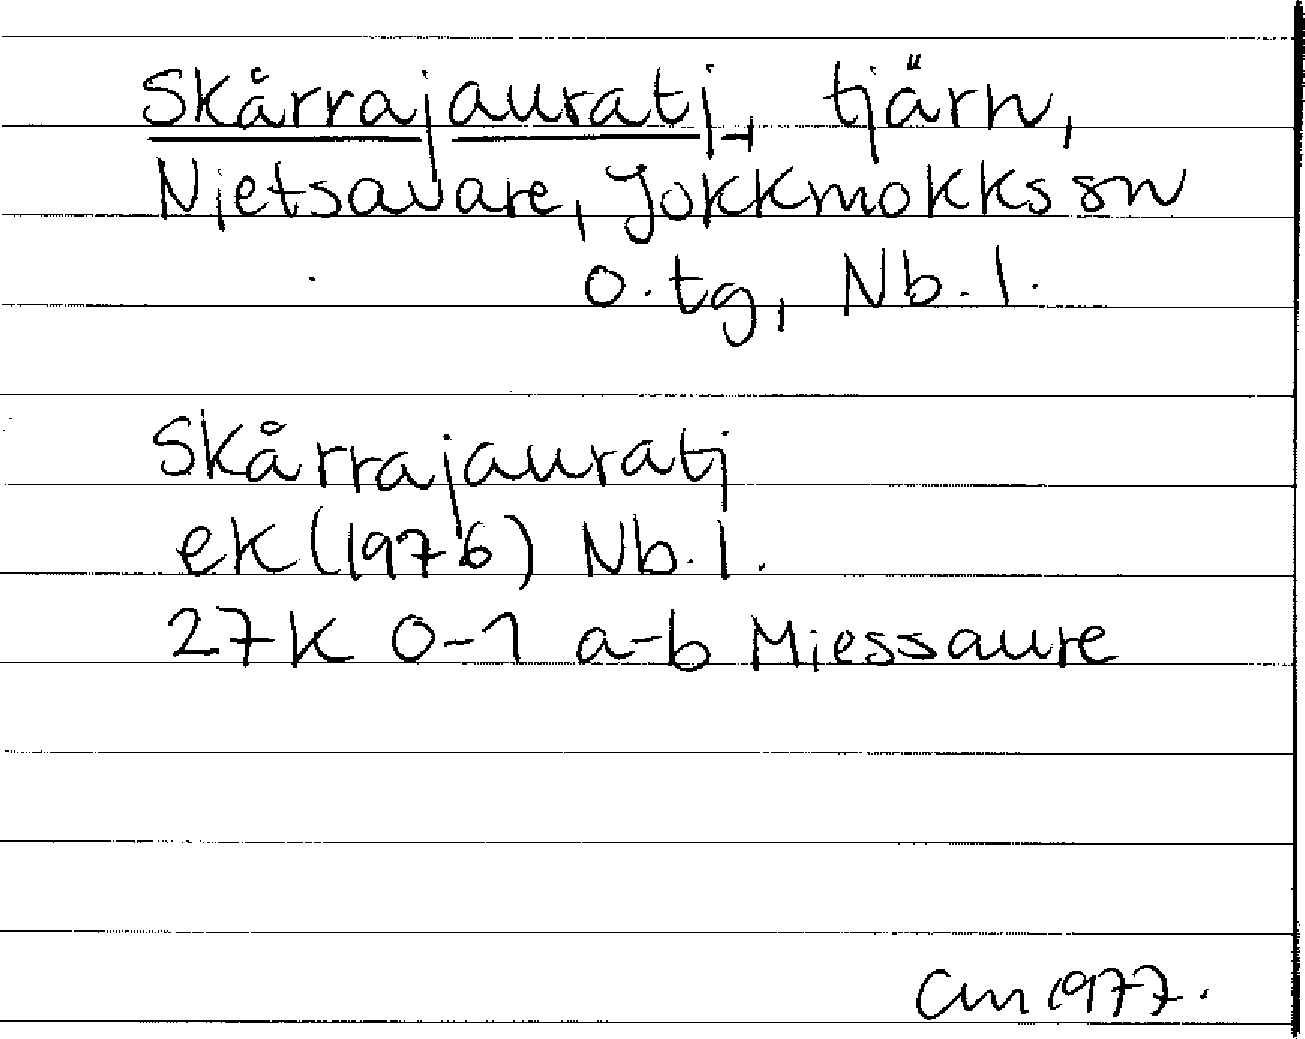 Skårrajauratj, tjärn,
Njetsavare, Jokkmokks sn
o. tg, Nb. l.
Skårrajauratj
ek (1976) Nb. l.
27K 0-1 a-b Miessaure
Cm 1977.